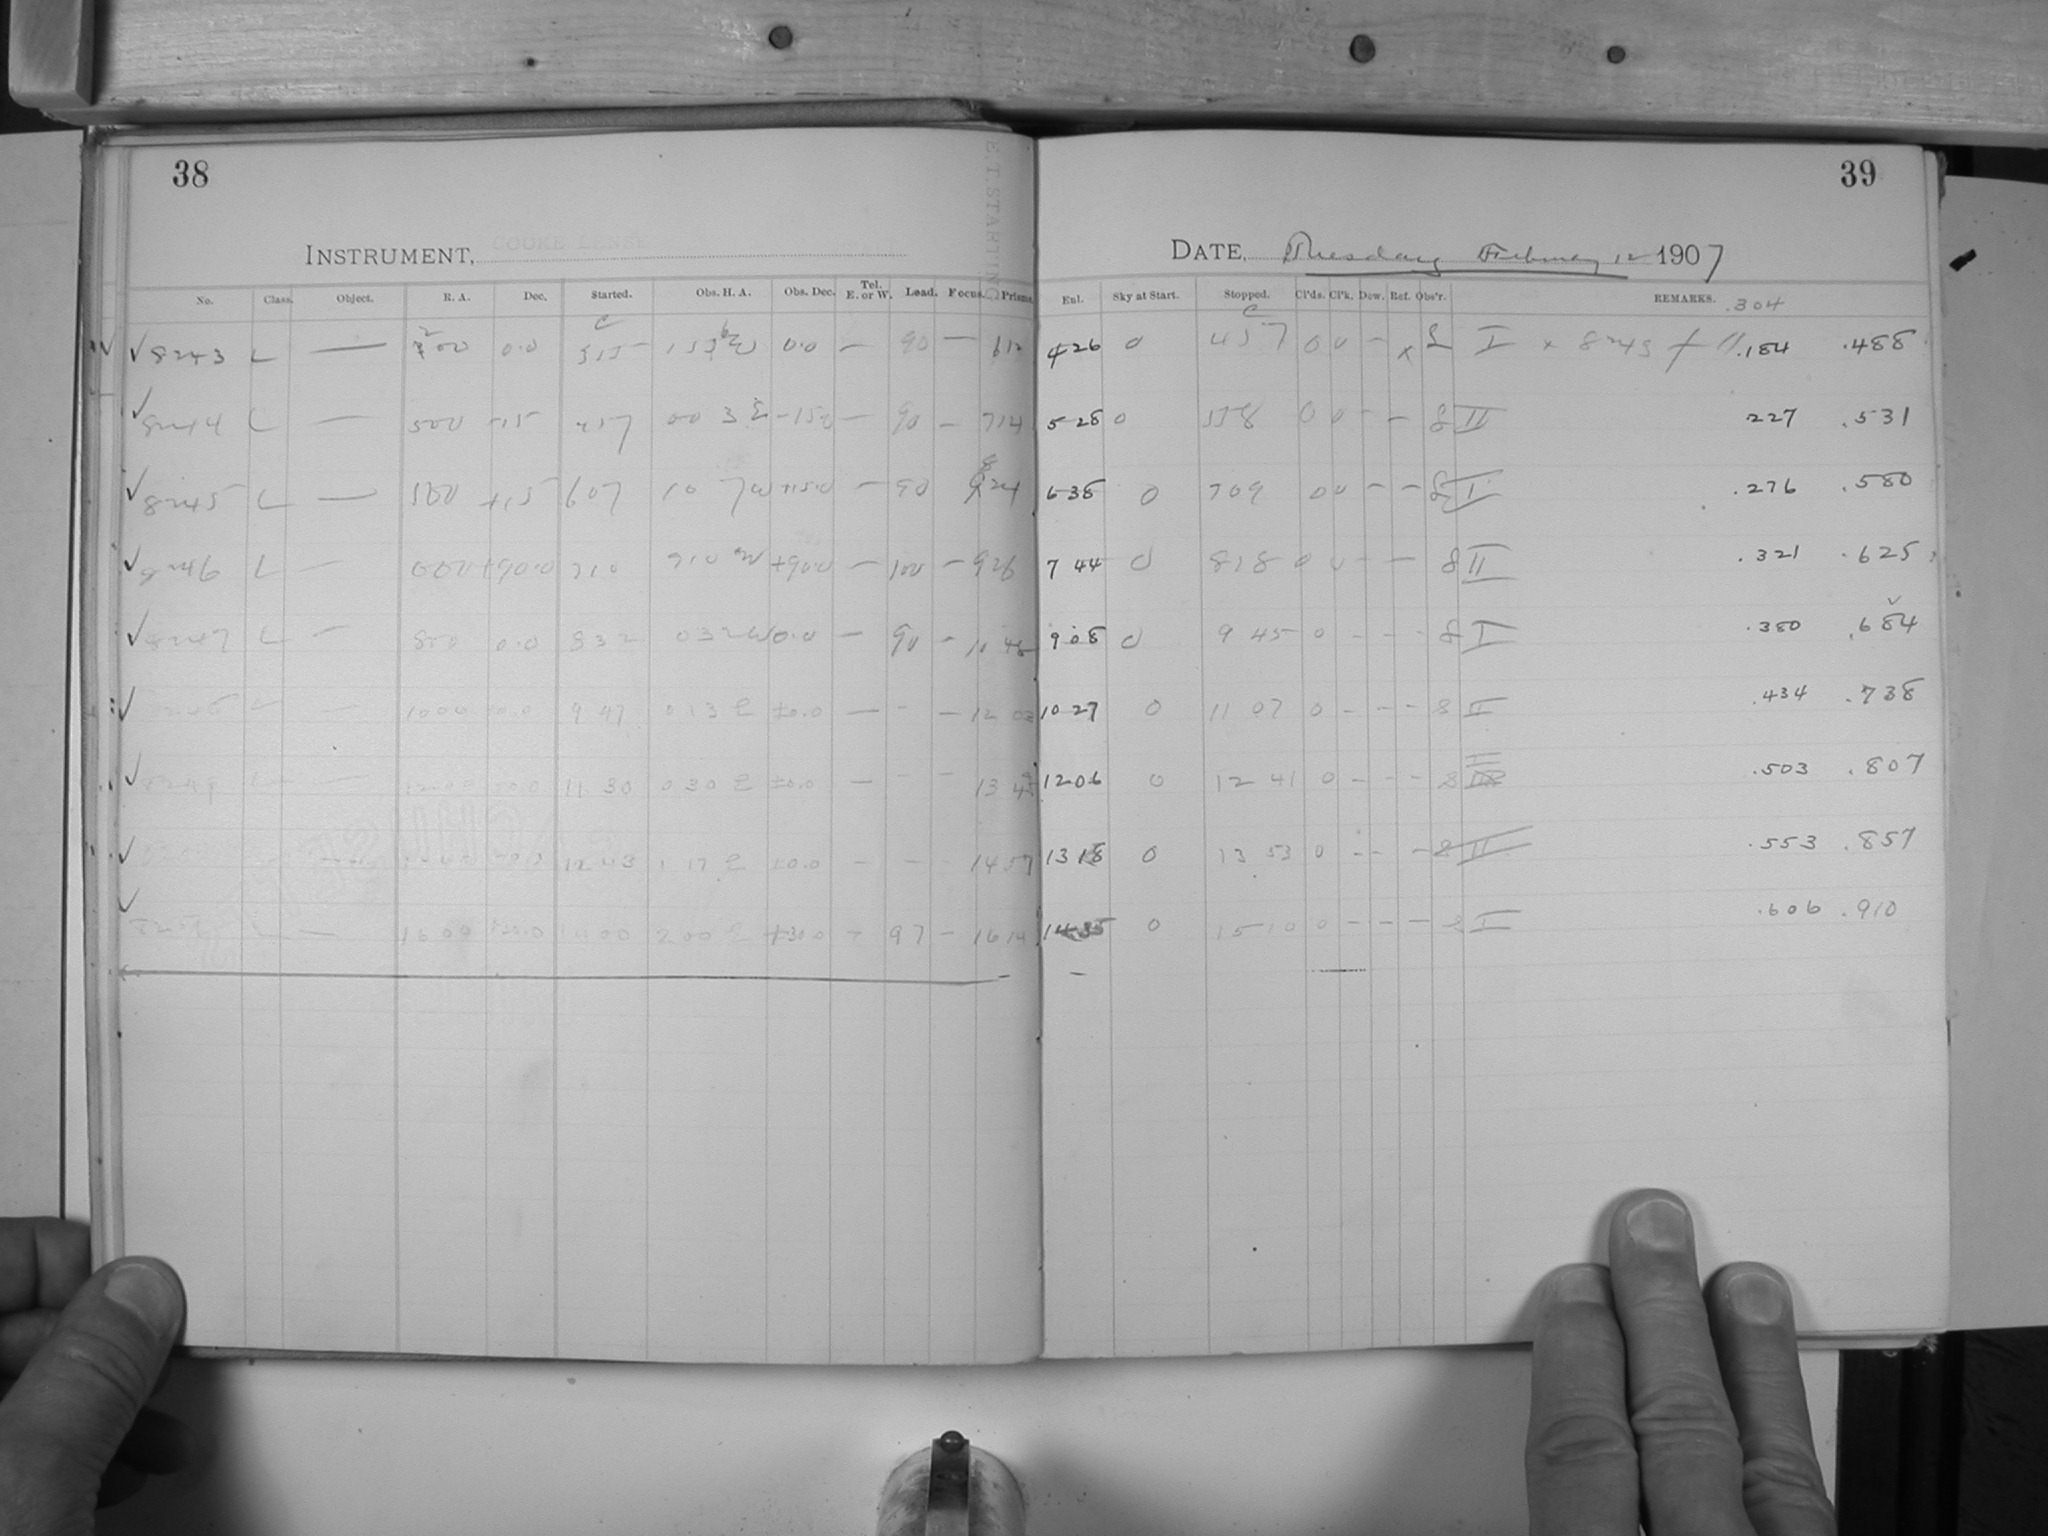 38
E. T. STARTING
INSTRUMENT, COOKE LENSE
No. Class. Object. R. A. Dec. Started. Obs. H. A. Obs. Dec. Tel. E. or W. Load. Focus. Prisms.
✓ 8243 L — 2 00 0.0 C 355 0.0 — 90 — 612
✓ 8244 L — 500 -15 457 00 3 E -15.0 — 90 — 714
✓ 8245 L — 500 +15 607 10 7 W +15.0 — 90 — 824
✓ 8246 L — 000 +90.0 710 710 W +90.0 — 100 — 926
✓ 8247 L — 800 0.0 832 032 W 0.0 — 90 — 10
✓ — 1000 0.0 9 47 0 13 E ±0.0 — - — 12 03
✓ 8249 L — 1200 ±0.0 11 30 0 30 E ±0.0 — - - 13 45
✓ 12 43 1 17 E ±0.0 - - - 14 57
✓ L — 1600 +30.0 1400 2 00 E +30.0 - 97 - 16 14
39
DATE, Tuesday February 12 1907
Ent. Sky at Start. Stopped. Cl'ds. Cl'k. Dew. Ref. Obs'r. REMARKS. .304
426 0 C 457 0 0 - x I x 8245 .184 .488
528 0 558 0 0 - - 8 II .227 .531
638 0 709 0 0 - - 8 I .276 .580
7 44 0 818 0 0 - - 8 II .321 .625
9 08 0 9 45 0 - - - 8 I .380 .684
10 27 0 11 07 0 - - - 8 II .434 .738
1206 0 12 41 0 - - - 8 I .503 .807
13 18 0 13 53 0 - - - 8 II .553 .857
1435 0 1510 0 - - - 8 I .606 .910